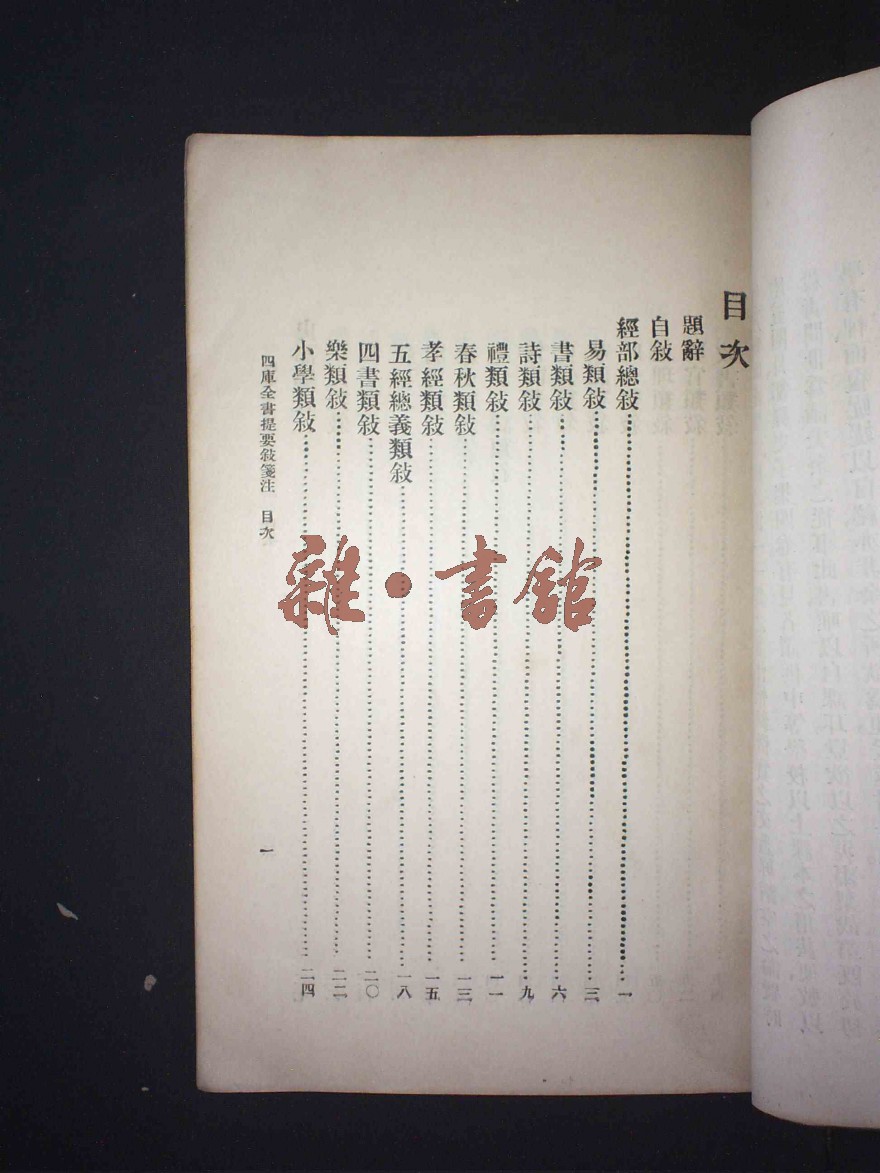 目次
題辭
自敍
經部總敍……一
易類敍……三
書類敍……六
詩類敍……九
禮類敍……一一
春秋類敍……一三
孝經類敍……一五
五經總義類敍……一八
四書類敍……二〇
樂類敍……二二
小學類敍……二四
四庫全書提要敍箋注 目次
一
雜·書館